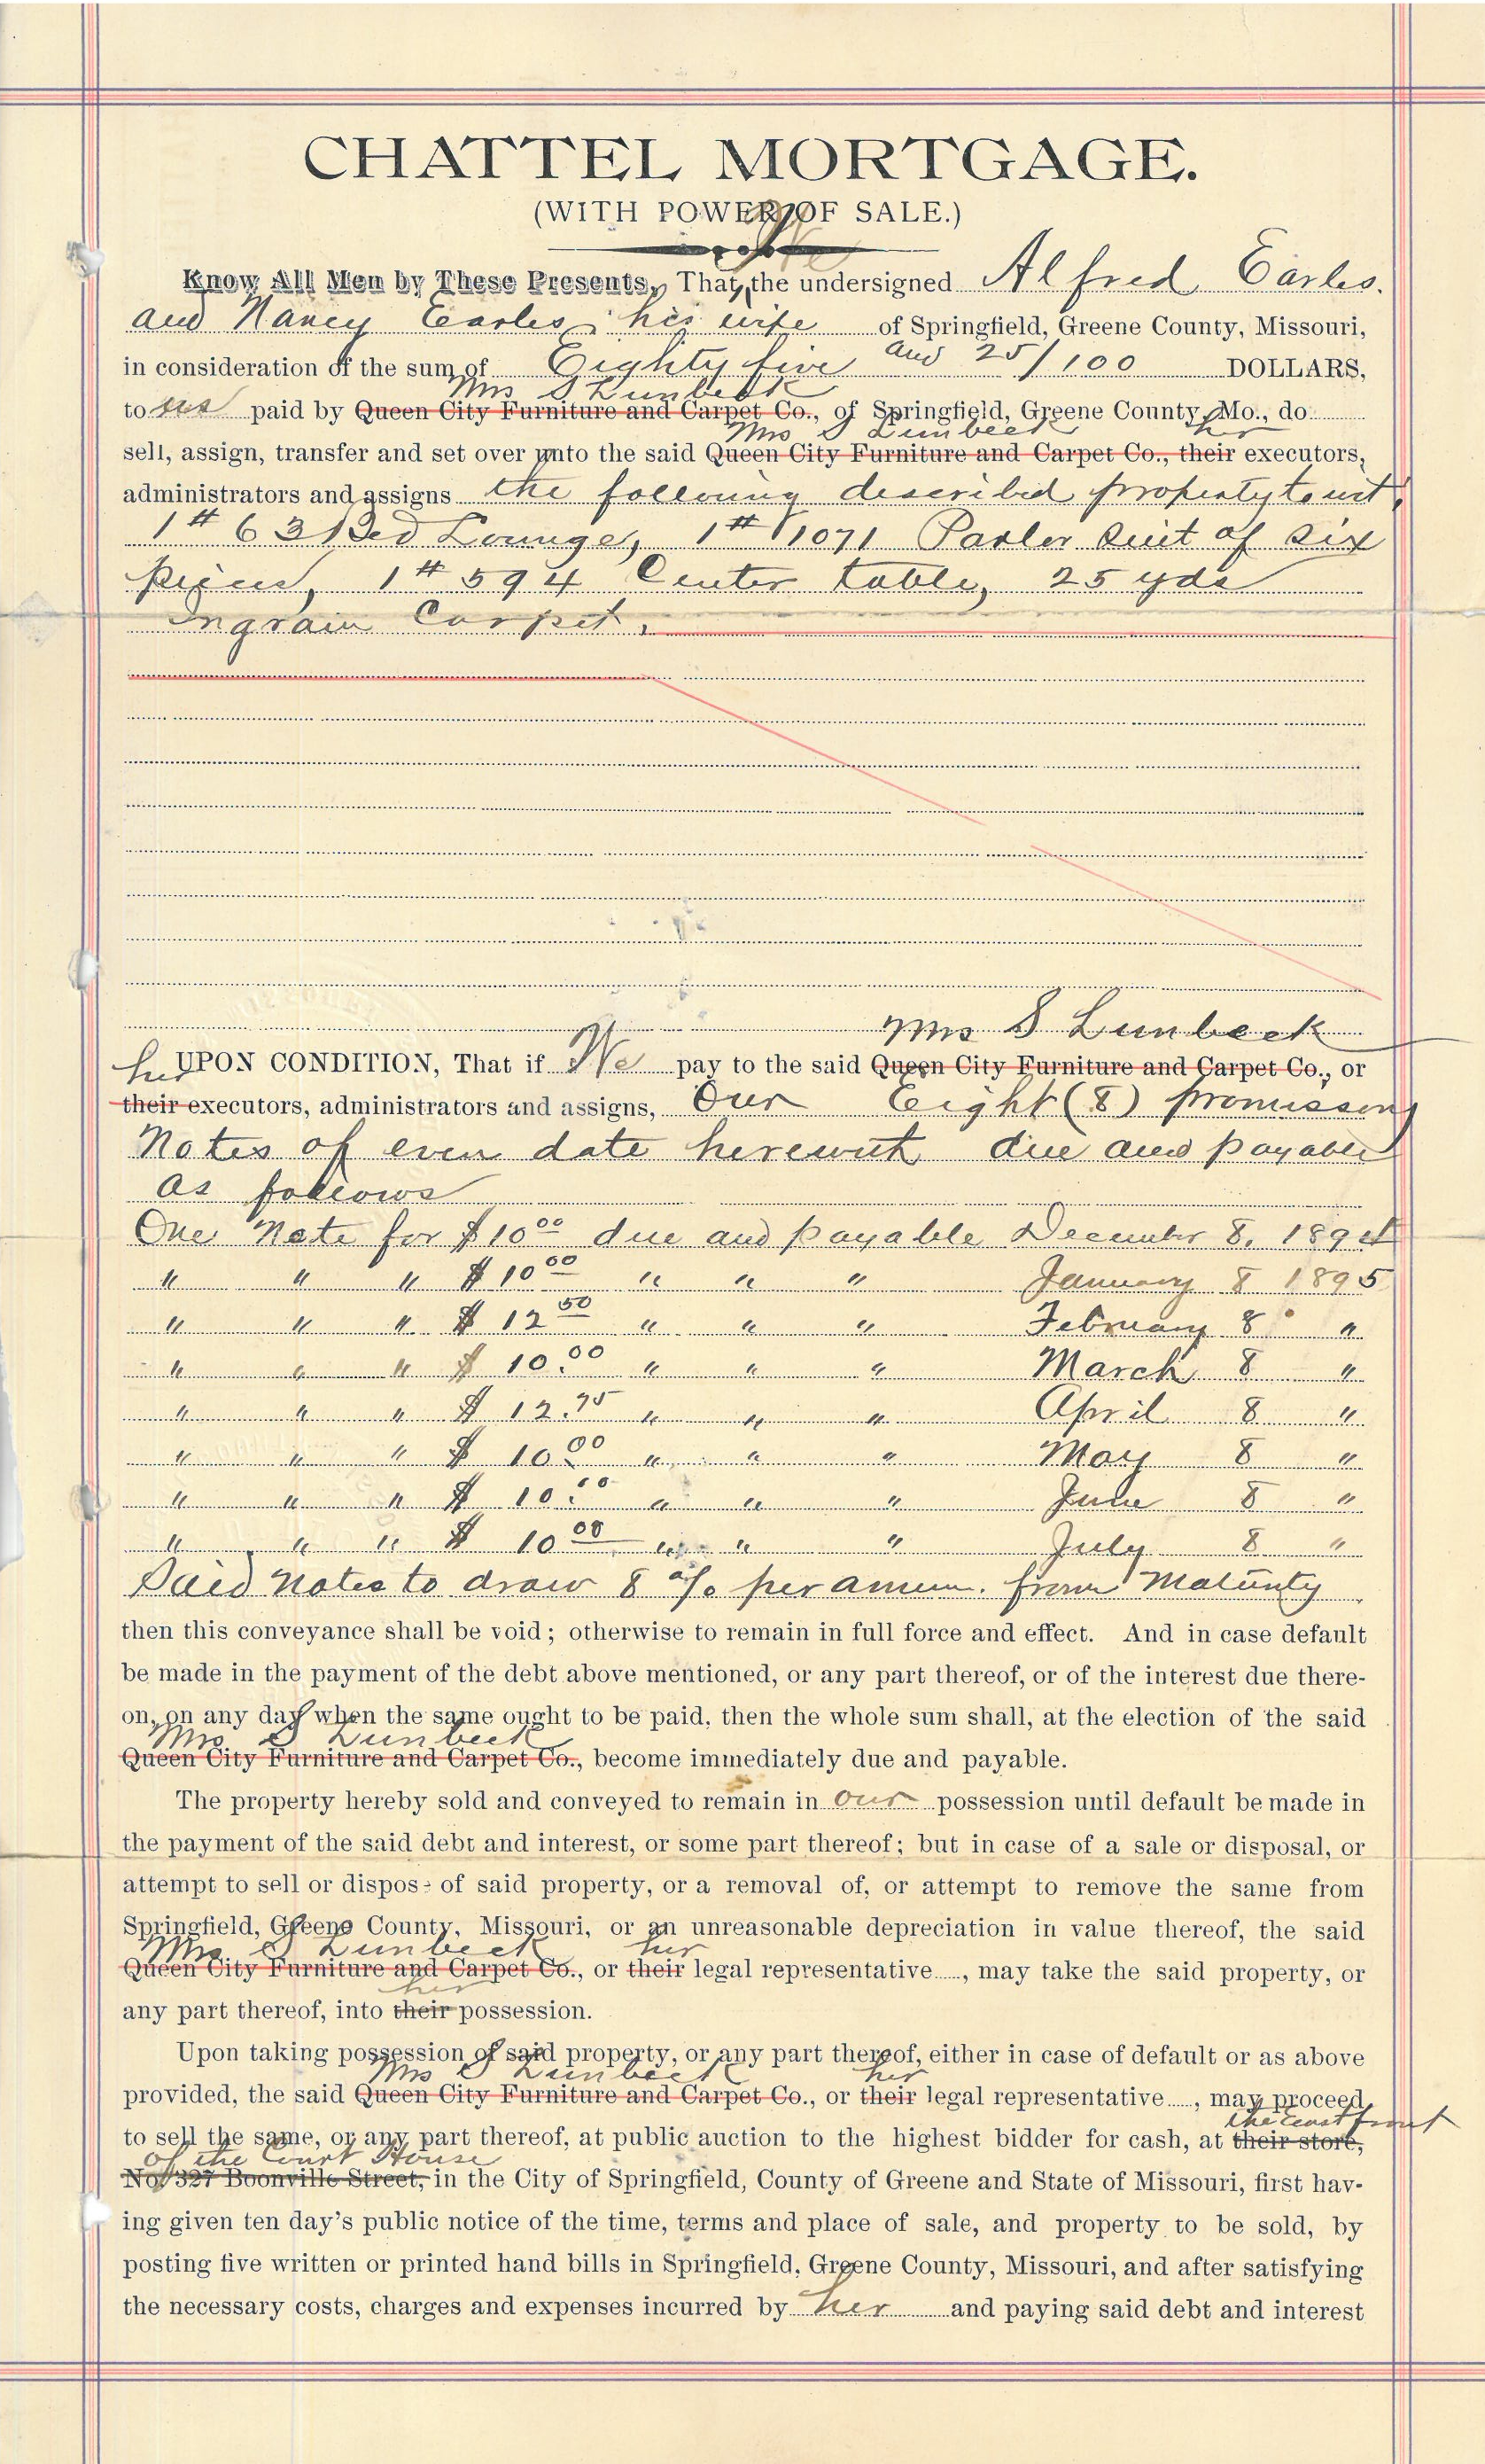 CHATTEL MORTGAGE.
(WITH POWER OF SALE.)
We
Know All Men by These Presents, That, the undersigned Alfred Earles.
and Nancy Earles, his wife of Springfield, Greene County, Missouri,
in consideration of the sum of Eighty five and 25/100 DOLLARS,
Mrs S Lunbeck
to us paid by Queen City Furniture and Carpet Co., of Springfield, Greene County, Mo., do
Mrs S Lunbeck her
sell, assign, transfer and set over unto the said Queen City Furniture and Carpet Co., their executors,
administrators and assigns the following described property to wit:
1 # 63 Bed Lounge, 1 # 1071 Parlor Suit of six
pieces, 1 # 594 Center table, 25 yds
Ingrain Carpet.
Mrs S Lunbeck
UPON CONDITION, That if We pay to the said Queen City Furniture and Carpet Co., or
her
their executors, administrators and assigns, Our Eight (8) promissory
Notes of even date herewith due and payable
as follows
One Note for $10 00 due and payable December 8, 1894
" " " $10 00 " " " January 8 1895
" " " $12 50 " " " February 8 "
" " " $10.00 " " " March 8 "
" " " $12.75 " " " April 8 "
" " " $10.00 " " " May 8 "
" " " $10.00 " " " June 8 "
" " " $10 00 " " " July 8 "
Said notes to draw 8 % per annum. from Maturity
then this conveyance shall be void; otherwise to remain in full force and effect. And in case default
be made in the payment of the debt above mentioned, or any part thereof, or of the interest due there-
on, on any day when the same ought to be paid, then the whole sum shall, at the election of the said
Mrs S Lunbeck
Queen City Furniture and Carpet Co., become immediately due and payable.
The property hereby sold and conveyed to remain in our possession until default be made in
the payment of the said debt and interest, or some part thereof; but in case of a sale or disposal, or
attempt to sell or dispose of said property, or a removal of, or attempt to remove the same from
Springfield, Greene County, Missouri, or an unreasonable depreciation in value thereof, the said
Mrs S Lunbeck her
Queen City Furniture and Carpet Co., or their legal representative....., may take the said property, or
her
any part thereof, into their possession.
Upon taking possession of said property, or any part thereof, either in case of default or as above
Mrs S Lunbeck her
provided, the said Queen City Furniture and Carpet Co., or their legal representative....., may proceed
the East front
to sell the same, or any part thereof, at public auction to the highest bidder for cash, at their store,
of the Court House
No. 327 Boonville Street, in the City of Springfield, County of Greene and State of Missouri, first hav-
ing given ten day's public notice of the time, terms and place of sale, and property to be sold, by
posting five written or printed hand bills in Springfield, Greene County, Missouri, and after satisfying
the necessary costs, charges and expenses incurred by her and paying said debt and interest